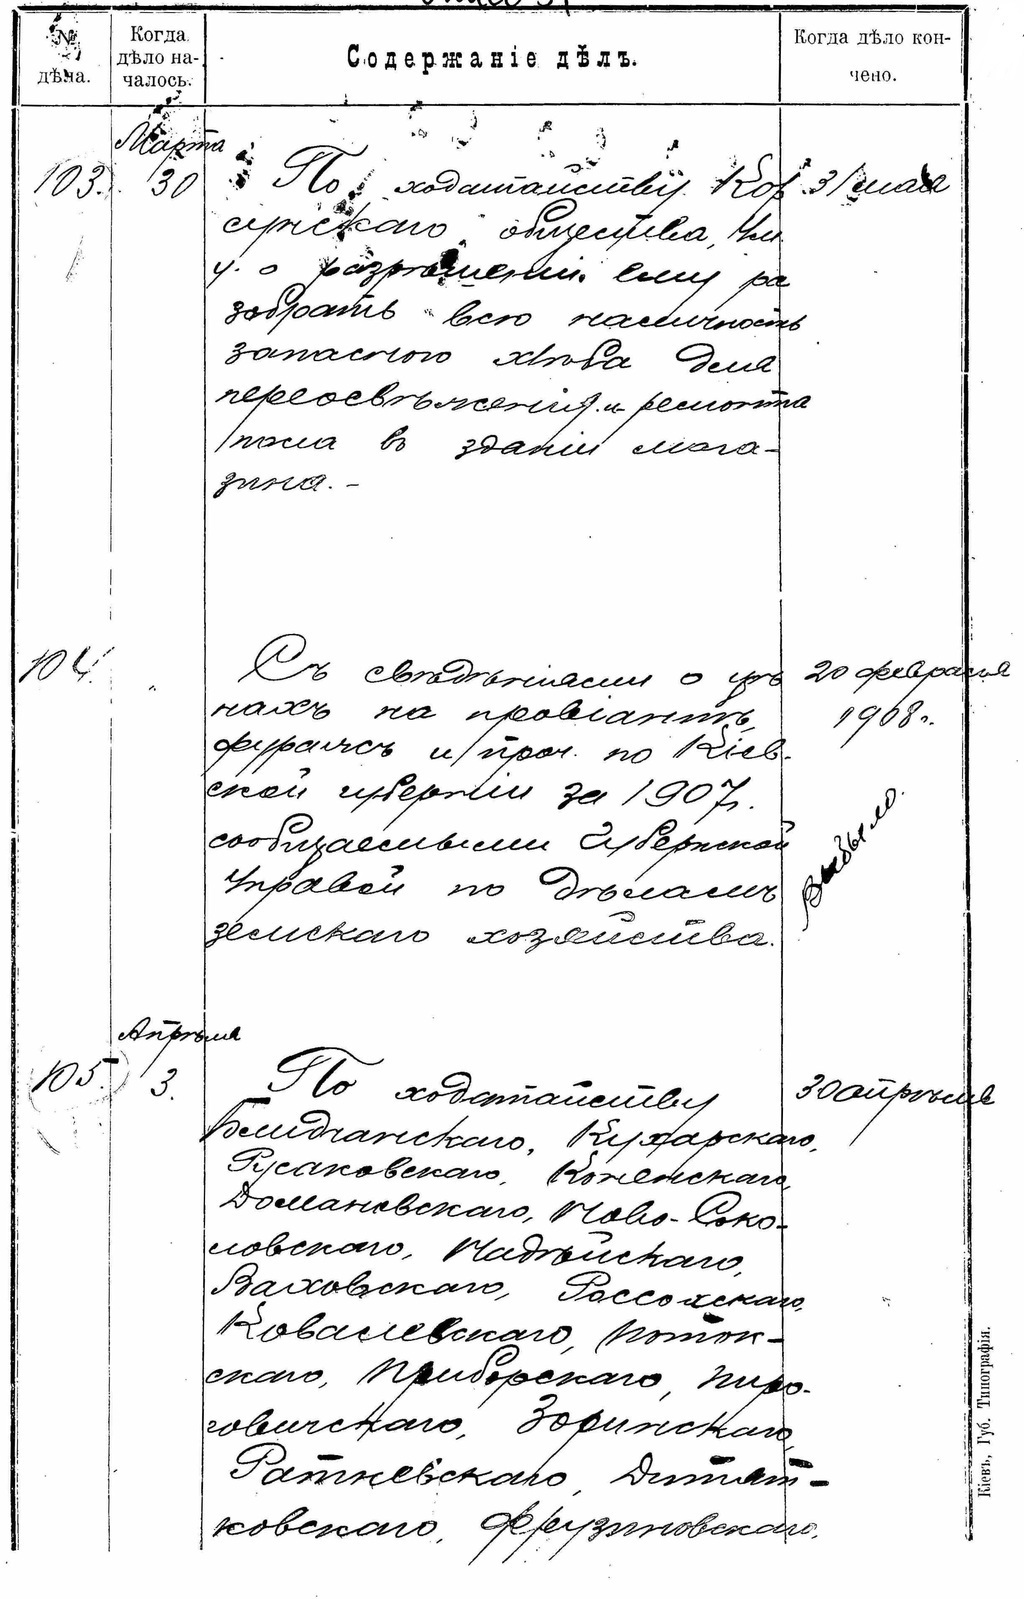 № дѣла.
Когда дѣло на-
чалось.
Содержаніе дѣлъ.
Когда дѣло кон-
чено.
Марта
103. 30 По ходатайству Кор 31 мая
сунскаго общества,
у. о разрѣшеніи ему ра
зобрать всю наличность
запаснаго хлѣба для
переосвѣженія и ремонта
пола въ зданіи мага-
зина. -
104. " Съ свѣдѣніями о цѣ 20 февраля
нахъ на провіантъ, 1908 г.
фуражъ и проч. по Кіев-
ской губерніи за 1907 г.
сообщаемыми Губернской
Управой по дѣламъ
земскаго хозяйства.
Выбыло.
Апрѣля
105. 3. По ходатайству 30 апрѣля
Блидчанскаго, Кухарскаго,
Русаковскаго, Коленскаго,
Домановскаго, Ново-Соко-
ловскаго, Мадѣйскаго,
Ваховскаго, Россохскаго,
Ковалевскаго, Поток-
скаго, Приборскаго, Пиро-
говичскаго, Зоринскаго,
Ратневскаго, Дитят-
ковскаго, Фрузиновскаго,
Кіевъ, Губ. Типографія.